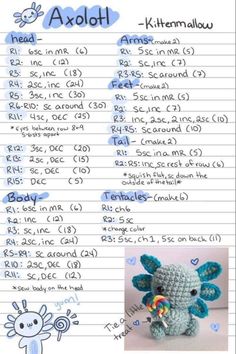 Axolotl
-Kittenmallow
head-
R1: 6sc in MR (6)
R2: inc (12)
R3: sc,inc (18)
R4: 2sc,inc (24)
R5: 3sc,inc (30)
R6-R10: sc around (30)
R11: 4sc, DEC (25)
*eyes between row 8+9
5 sts apart
R12: 3sc, DEC (20)
R13: 2sc, DEC (15)
R14: sc, DEC (10)
R15: DEC (5)
Body-
R1: 6sc in MR (6)
R2: inc (12)
R3: sc, inc (18)
R4: 2sc, inc (24)
R5-R9: sc around (24)
R10: 2sc, DEC (18)
R11: sc, DEC (12)
*sew body on the head
yum!
Arms-(make 2)
R1: 5sc in MR (5)
R2: sc, inc (7)
R3-R5: sc around (7)
Feet-(make 2)
R1: 5sc in MR (5)
R2: sc, inc (7)
R3: inc, 2sc, 2inc, 2sc (10)
R4-R5: sc around (10)
Tail-(make 1)
R1: 5sc in a MR (5)
R2-R5: inc, sc rest of row (6)
*squish flat, sc down the
outside of the tail*
Tentacles-(make 6)
R1: ch6
R2: 5sc
*change color
R3: 5sc, ch1, 5sc on back (11)
Tie a little
treat